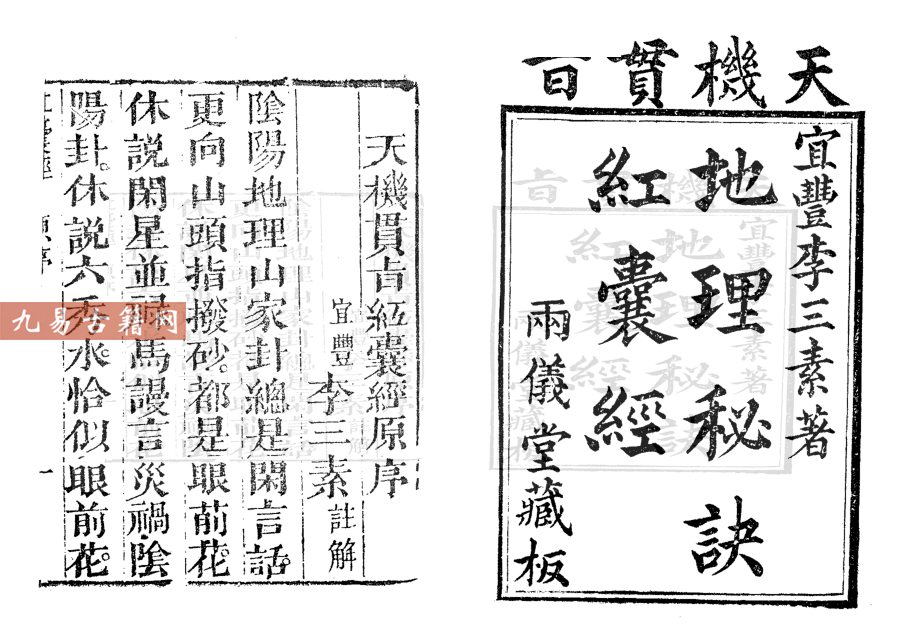 天機貫㫖
宜豐李三素著
地理秘訣
紅囊經
兩儀堂藏板
天機貫㫖紅囊經原序
宜豐李三素註解
陰陽地理山家卦總是閑言話。
更向山頭指撥砂。都是眼前花。
休說閑星並祿馬謾言災禍。陰
陽卦。休說六水。恰似眼前花。
一
九易古籍网